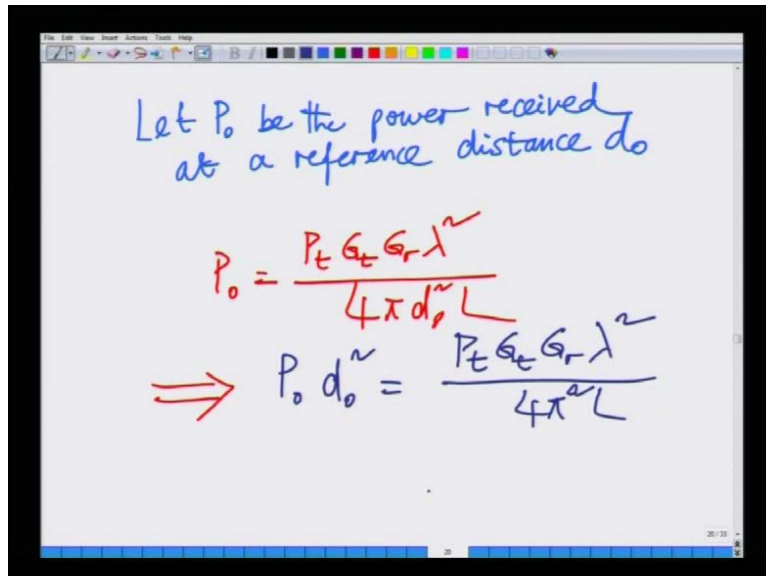 File Edit View Insert Actions Tools Help
B I
Let P₀ be the power received
at a reference distance d₀
P₀ = P_t G_t G_r λ² / 4π d₀² L
⇒ P₀ d₀² = P_t G_t G_r λ² / 4π² L
20/33
20